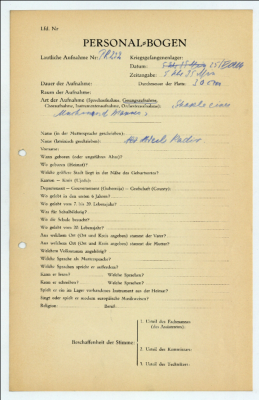 Lfd. Nr
PERSONAL-BOGEN
Lautliche Aufnahme Nr: PK 272 Kriegsgefangenenlager:
Datum:
Zeitangabe: 5 Uhr 35 Min
Dauer der Aufnahme: Durchmesser der Platte: 30 cm
Raum der Aufnahme:
Art der Aufnahme (Sprechaufnahme, Gesangsaufnahme,
Choraufnahme, Instrumentenaufnahme, Orchesteraufnahme):
Name (in der Muttersprache geschrieben):
Name (lateinisch geschrieben):
Vorname:
Wann geboren (oder ungefähres Alter)?
Wo geboren (Heimat)?
Welche größere Stadt liegt in der Nähe des Geburtsortes?
Kanton — Kreis (Ujedz):
Departement — Gouvernement (Gubernija) — Grafschaft (County):
Wo gelebt in den ersten 6 Jahren?
Wo gelebt vom 7. bis 20. Lebensjahr?
Was für Schulbildung?
Wo die Schule besucht?
Wo gelebt vom 20. Lebensjahr?
Aus welchem Ort (Ort und Kreis angeben) stammt der Vater?
Aus welchem Ort (Ort und Kreis angeben) stammt die Mutter?
Welchem Volksstamm angehörig?
Welche Sprache als Muttersprache?
Welche Sprachen spricht er außerdem?
Kann er lesen? Welche Sprachen?
Kann er schreiben? Welche Sprachen?
Spielt er ein im Lager vorhandenes Instrument aus der Heimat?
Singt oder spielt er modern europäische Musikweisen?
Religion: Beruf:
1. Urteil des Fachmannes
(des Assistenten):
Beschaffenheit der Stimme:
2. Urteil des Kommissars:
3. Urteil des Technikers: